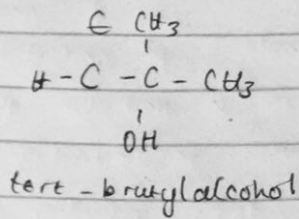 C CH3
H - C - C - CH3
OH
tert - brutylalcohol